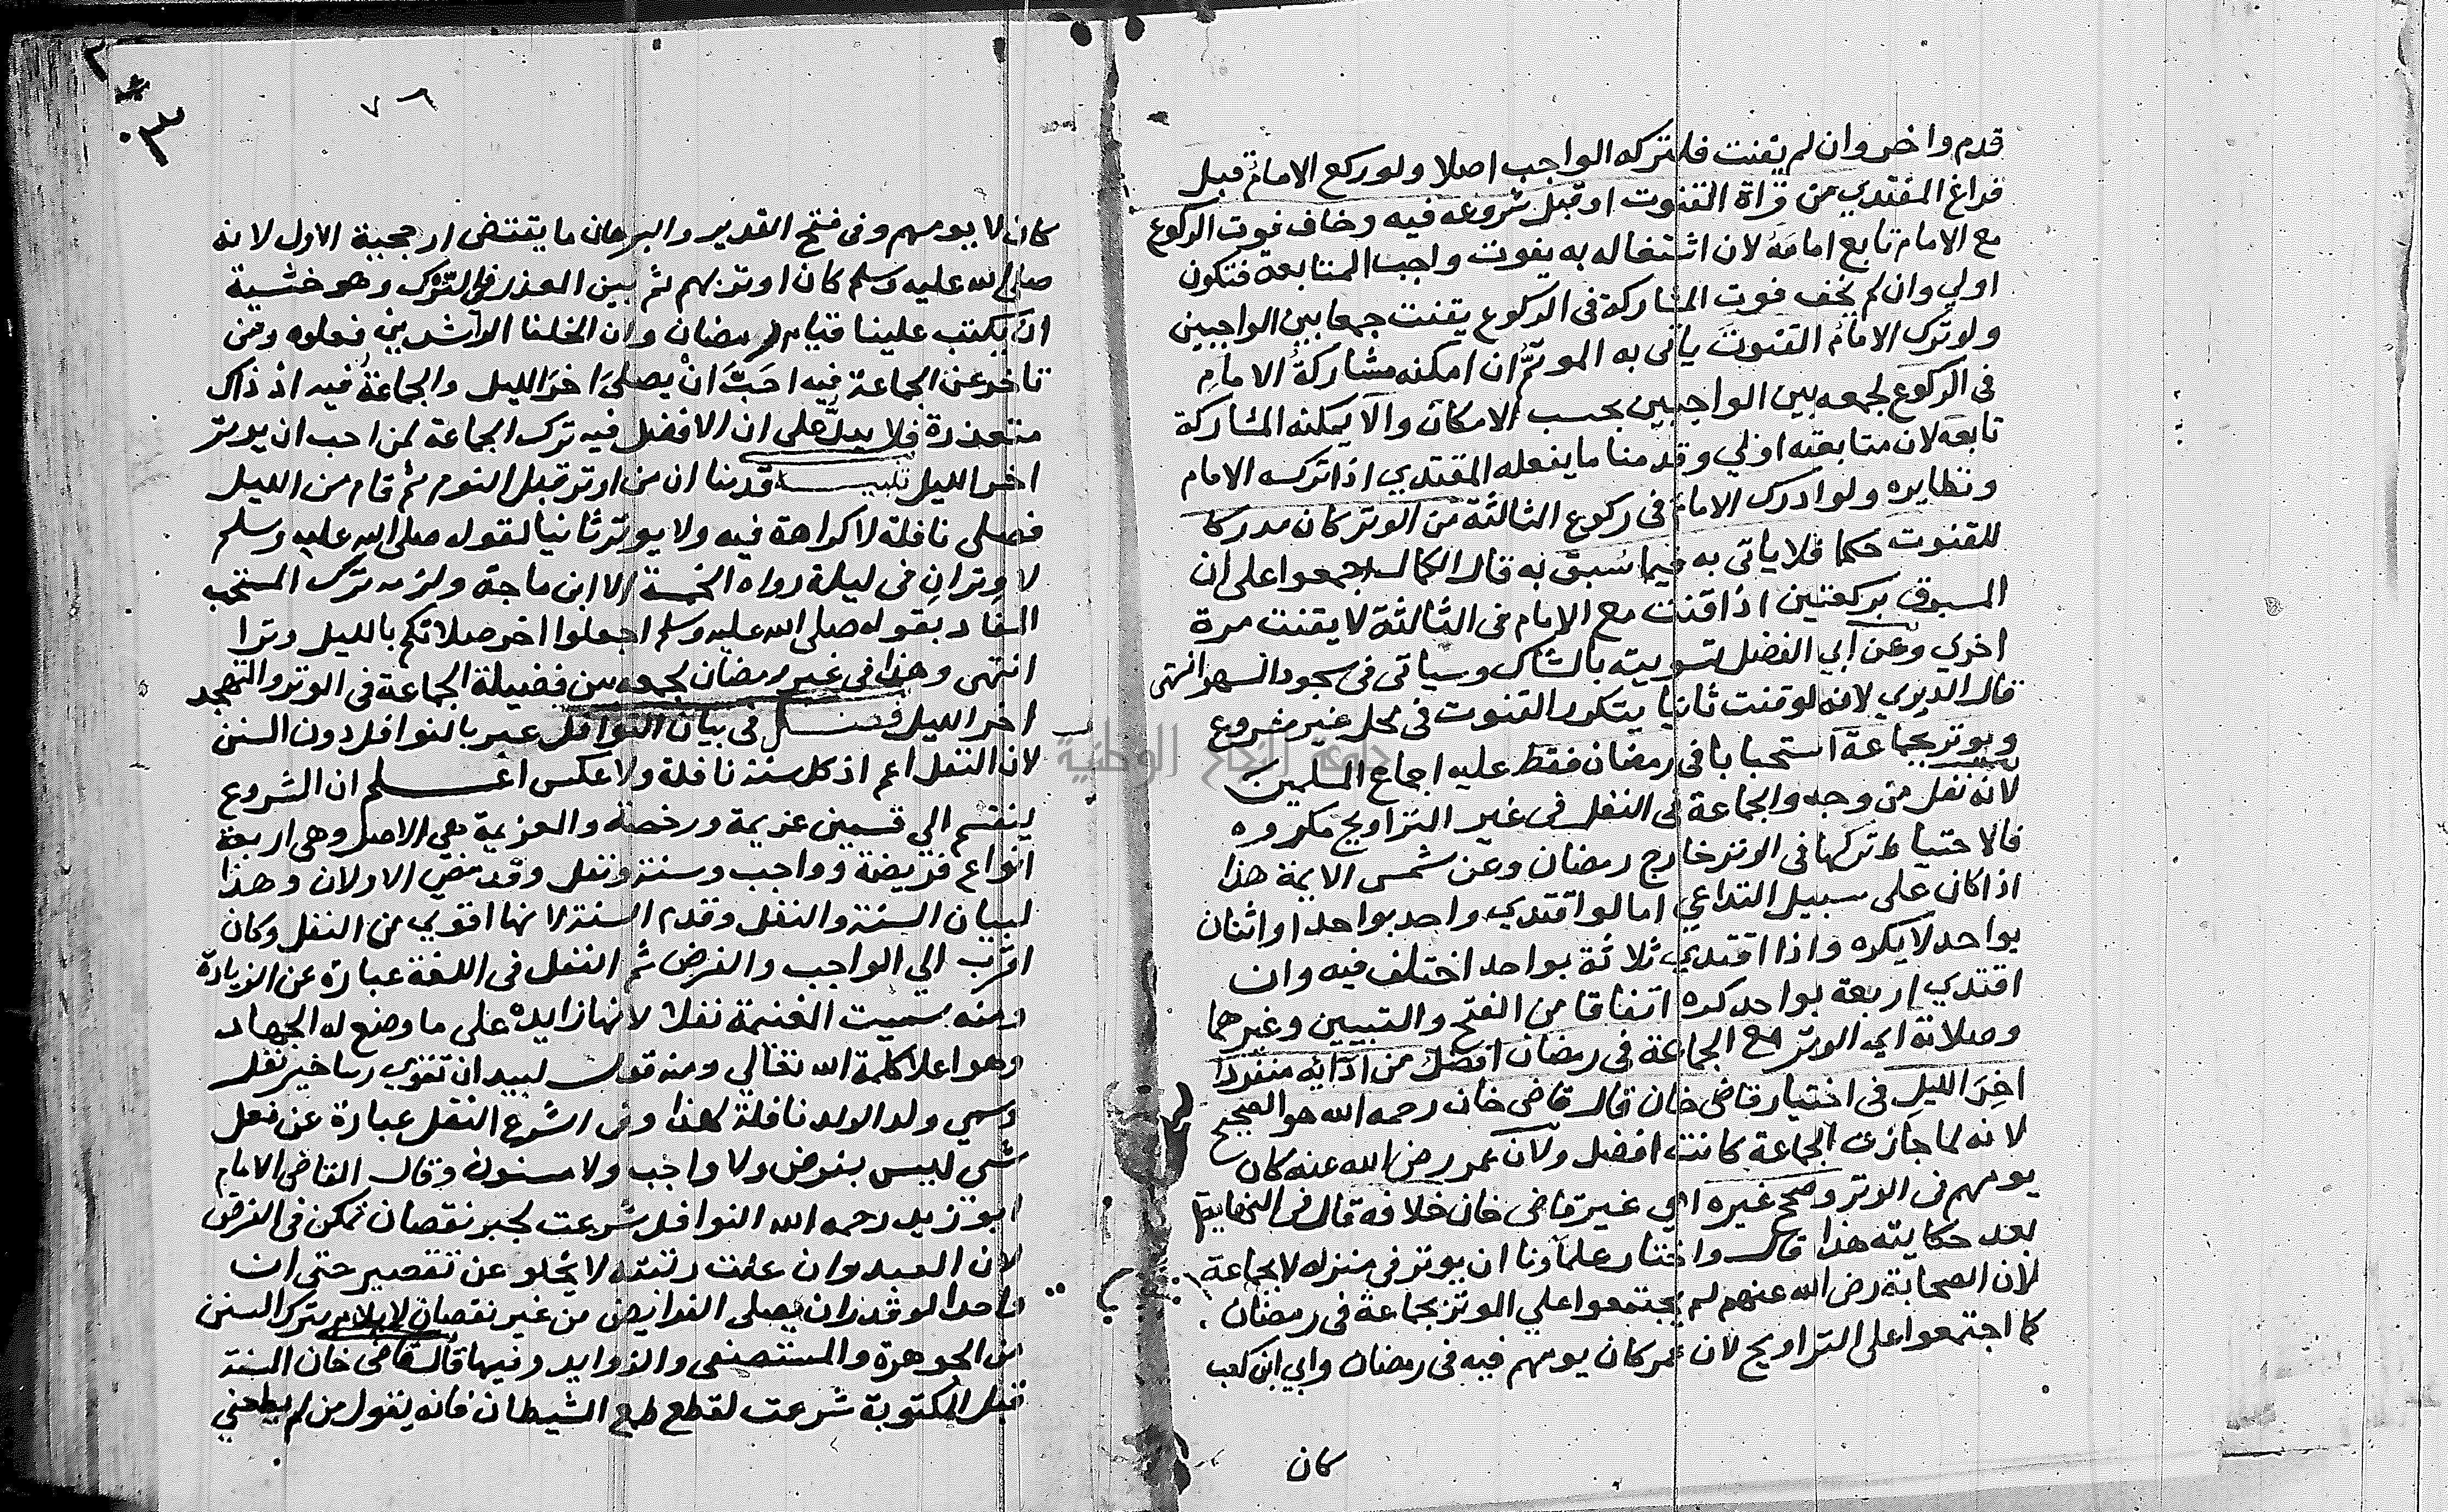 قدم واخر وان لم يقنت فلتركه الواجب اصلا ولو ركع الامام قبل
فراغ المقتدي من قراة القنوت او قبل شروعه فيه وخاف فوت الركوع
مع الامام تابع امامه لان اشتغاله به يفوت واجب المتابعة فتكون
اولي وان لم يخف فوت المشاركة في الركوع يقنت جمعا بين الواجبين
ولو ترك الامام القنوت ياتى به الموتم ان امكنه مشاركة الامام
في الركوع لجمعه بين الواجبين بحسب الامكان والا يمكنه المشاركة
تابعه لان متابعته اولي وقدمنا ما يفعله المقتدي اذا تركه الامام
ونظايره ولو ادرك الامام في ركوع الثالثة من الوتر كان مدركا
للقنوت حكما فلا ياتى به فيما سُبق به قال الكمال اجمعوا على ان
المسبوق بركعتين اذا قنت مع الامام فى الثالثة لا يقنت مرة
اخري وعن ابي الفضل تسويته بالشاك وسياتى فى سجود السهو انتهى
قال الديري لانه لو قنت ثانيا يتكرر القنوت فى محل غير مشروع
ويوتر بجماعة استحبابا فى رمضان فقط عليه اجماع المسلمين
لانه نفل من وجه والجماعة فى النفل فى غير التراويح مكروه
فالاحتياط تركها فى الوتر خارج رمضان وعن شمس الايمة هذا
اذا كان على سبيل التداعي اما لو اقتدي واحد بواحد او اثنان
بواحد لا يكره واذا اقتدي ثلاثة بواحد اختلف فيه وان
اقتدي اربعة بواحد كره اتفاقا من الفتح والتبيين وغيرهما
وصلاته اي الوتر مع الجماعة فى رمضان افضل من ادايه منفردا
اخِرَ الليل فى اختيار قاضى خان قال قاضى خان رحمه الله هو الصحيح
لانه لما جازت الجماعة كانت افضل ولان عمر رضى الله عنه كان
يومهم فى الوتر وصحح غيره اي غير قاضى خان خلافه قال فى النهاية
بعد حكايته هذا قال واختار علماونا ان يوتر فى منزله لا بجماعة
لان الصحابة رضى الله عنهم لم يجتمعوا على الوتر بجماعة فى رمضان
كما اجتمعوا على التراويح لان عمر كان يومهم فيه فى رمضان وابي ابن كعب
كان
٧٦
كان لا يومهم وفى فتح القدير والبرهان ما يقتضى ارجحية الاول لانه
صلى الله عليه وسلم كان اوتر بهم ثم بين العذر فى الترك وهو خشية
ان يكتب علينا قيام رمضان وان الخلفا الراشدين فعلوه ومن
تاخر عن الجماعة فيه احَبَّ اَنْ يصلى اخرَ الليل والجماعة فيه اذ ذاك
متعذرة فلا يدل على ان الافضل فيه ترك الجماعة لمن احب ان يوتر
اخر الليل تنبيه قدمنا ان من اوتر قبل النوم ثم قام من الليل
فصلى نافلة لا كراهة فيه ولا يوتر ثانيا لقوله صلى الله عليه وسلم
لا وتران فى ليلة رواه الخمسة الا ابن ماجة ولزمه ترك المستحب
المفاد بقوله صلى الله عليه وسلم اجعلوا اخر صلاتكم بالليل وترا
انتهى وهذا فى غير رمضان لجمعه بين فضيلة الجماعة فى الوتر والتهجد
اخر الليل فصل فى بيان النوافل عبر بالنوافل دون السنن
لان النفل اعم اذ كل سنة نافلة ولا عكس اعلم ان الشروع
ينقسم الي قسمين عزيمة ورخصة والعزيمة هي الاصل وهى اربعة
انواع فريضة وواجب وسنة ونفل وقد مضى الاولان وهذا
لبيان السنة والنفل وقدم السنة لانها اقوي من النفل وكان
اقرب الي الواجب والفرض ثم النفل فى اللغة عبارة عن الزيادة
ومنه سميت الغنيمة نفلا لانها زايدة على ما وضع له الجهاد
وهو اعلا كلمة الله تعالي ومنه قول لبيد ان تقوي ربنا خير نفل
وسمي ولد الولد نافلة لهذا وفى الشرع النفل عبارة عن فعل
شى ليس بفرض ولا واجب ولا مسنون وقال القاضى الامام
ابو زيد رحمه الله النوافل شرعت لجبر نقصان تمكن فى الفرض
لان العبد وان علت رتبته لا يخلو عن تقصير حتى ان
واحدا لو قدر ان يصلى الفرايض من غير نقصان لا يلام بترك السنن
من الجوهرة والمستصفى والزوايد وفيها قال قاضى خان السنة
قبل المكتوبة شرعت لقطع طمع الشيطان فانه يقول من لم يطعني
جامعة النجاح الوطنية